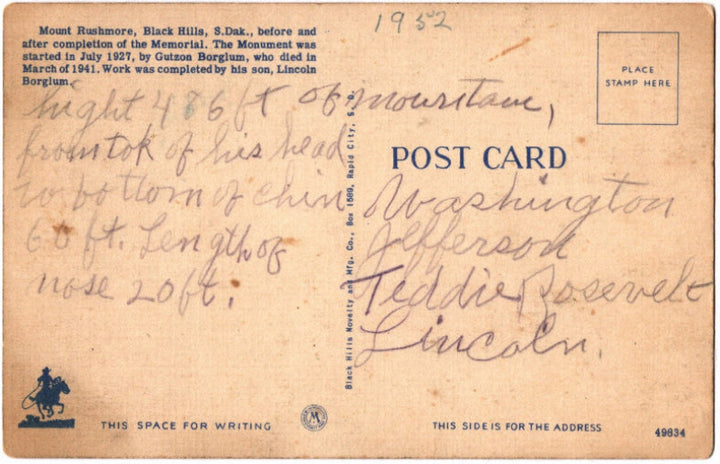 1952
Mount Rushmore, Black Hills, S.Dak., before and
after completion of the Memorial. The Monument was
started in July 1927, by Gutzon Borglum, who died in
March of 1941. Work was completed by his son, Lincoln
Borglum.
hight 486 ft of mountain,
from tok of his head
to bottom of chin
60 ft. Length of
nose 20 ft.
Black Hills Novelty and Mfg. Co., Box 1589, Rapid City, S.D.
PLACE
STAMP HERE
POST CARD
Washington
Jefferson
Teddie Rosevelt
Lincoln.
THIS SPACE FOR WRITING
THIS SIDE IS FOR THE ADDRESS
49834